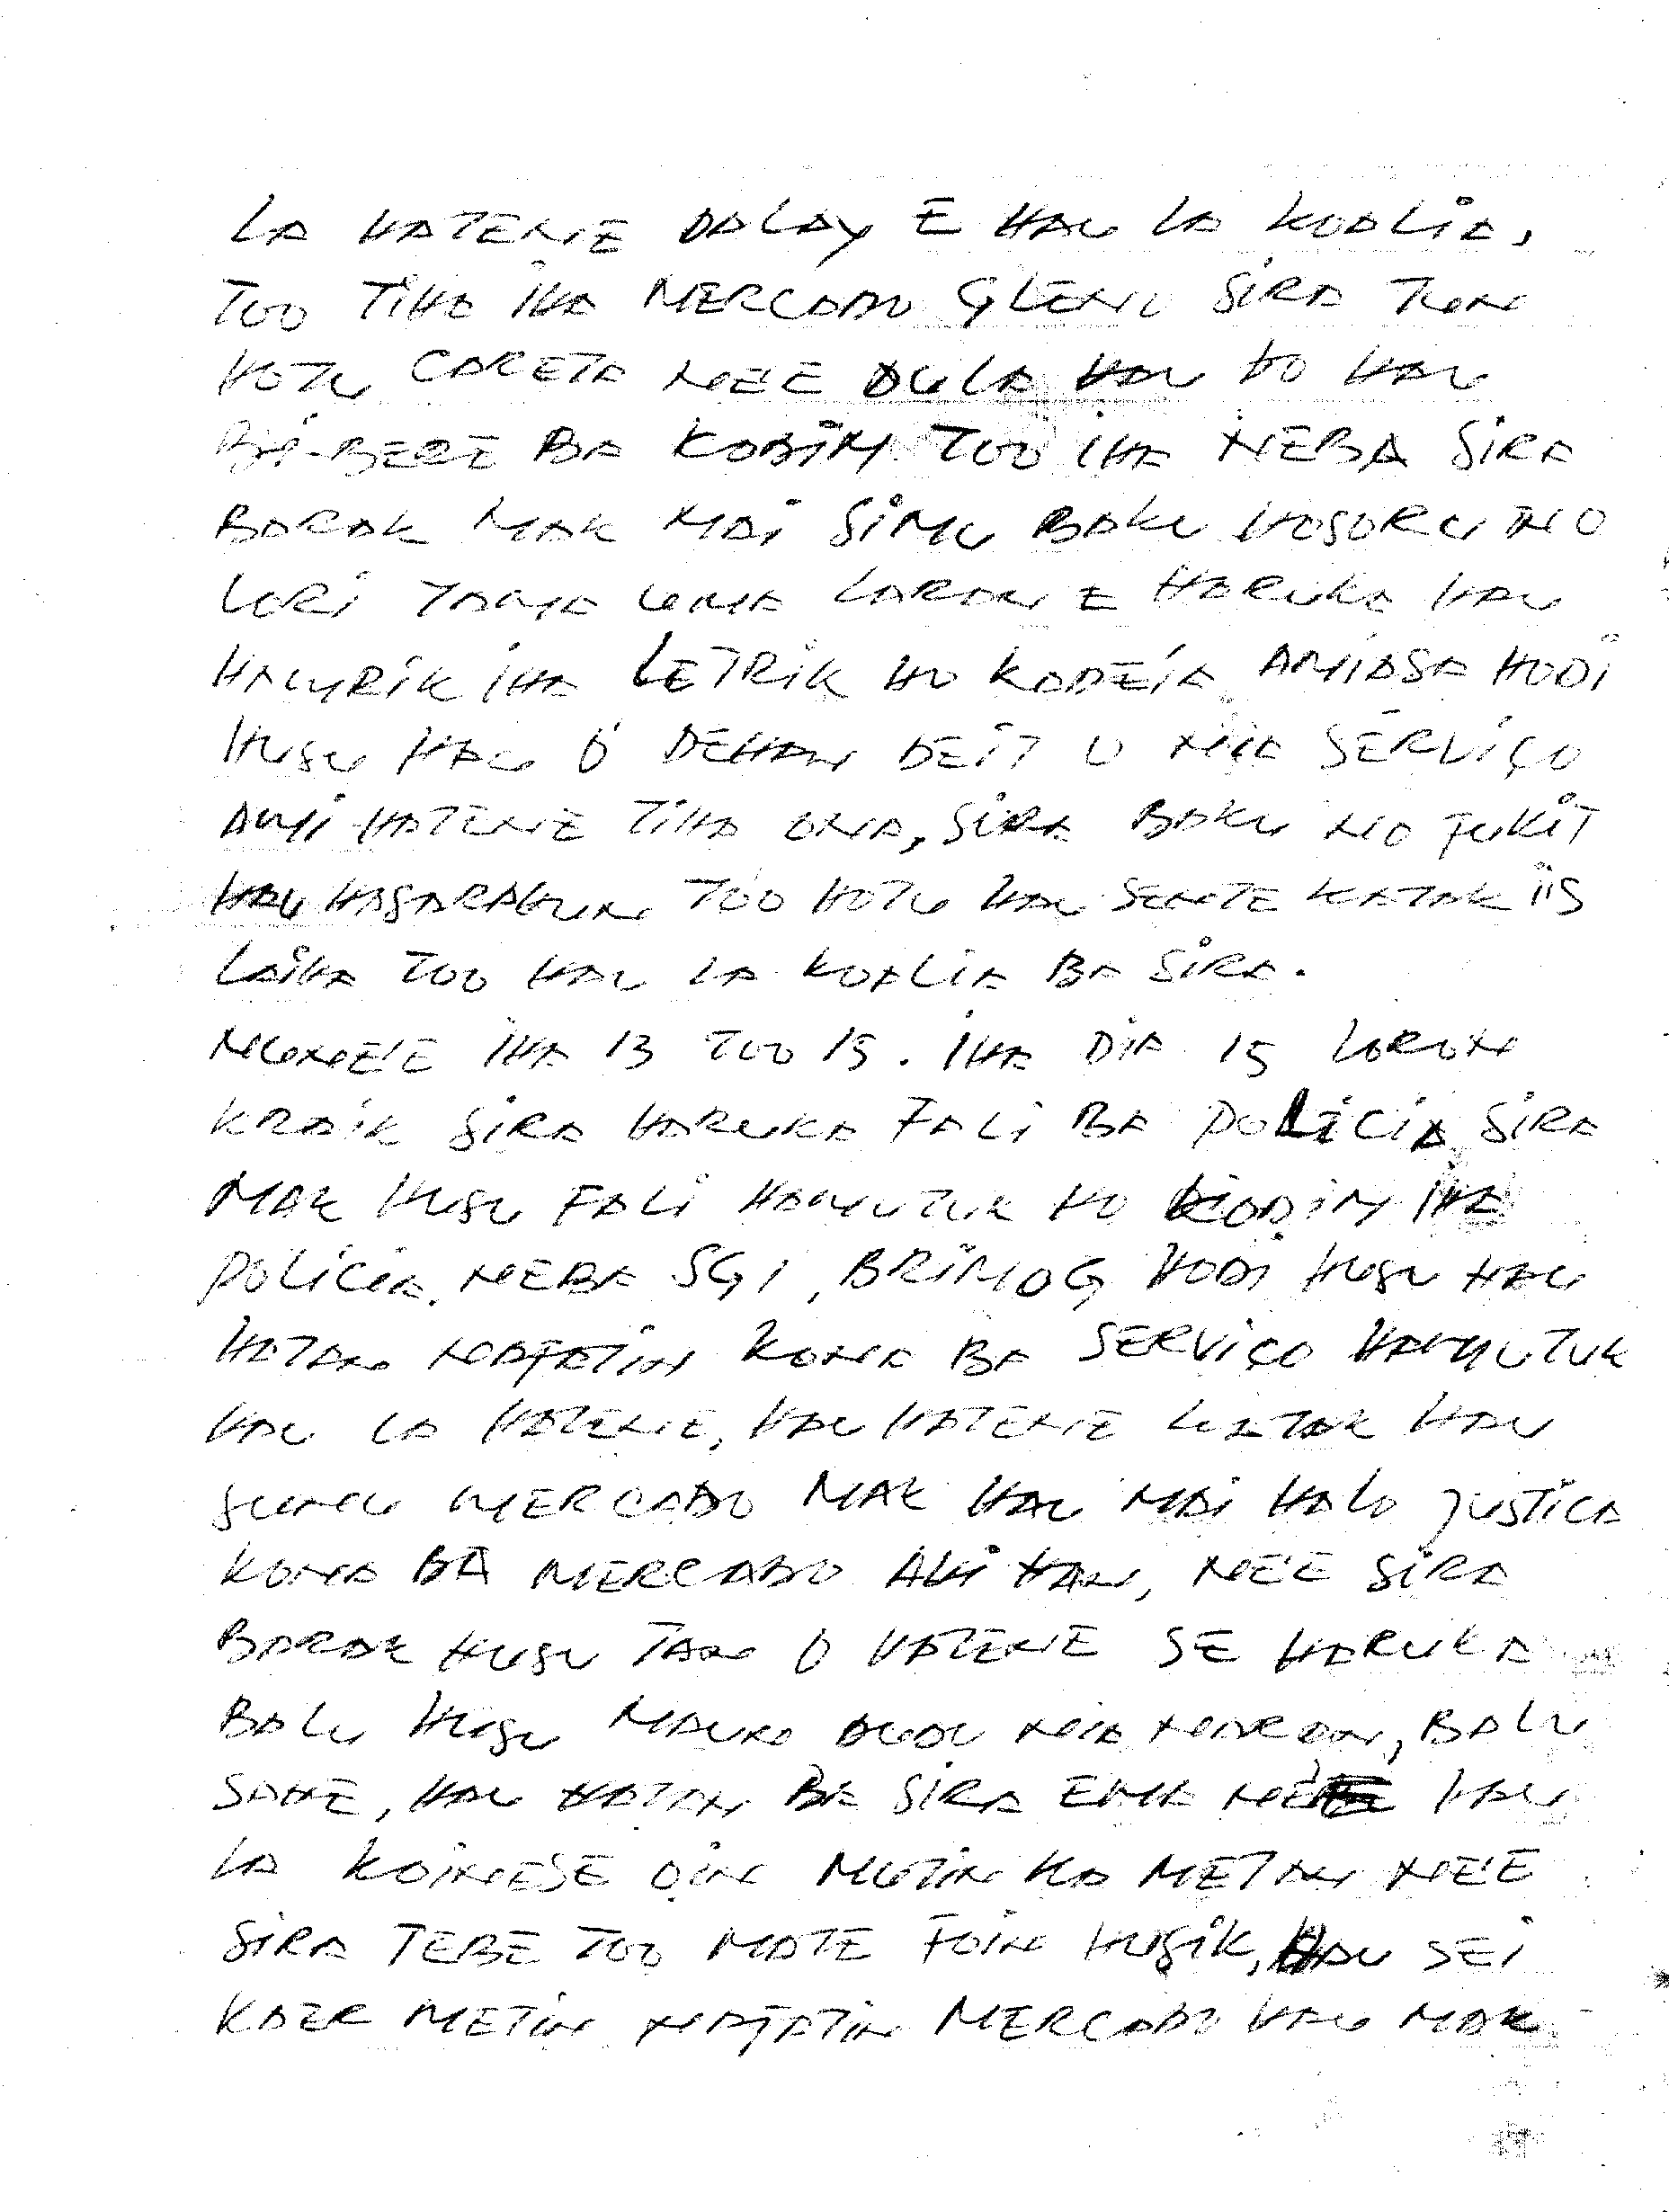 LA HATENE DALAY E HAU LA KOALIA,
TOO TIHA IHA MERCADO GLENO SIRA TUN
HOTU CARETA NEE DULA HAU HO HAU
BA KODIM TOO IHA NEBA SIRA
BARAK MAK MAI SIMU BAKU HOSORU NO
LORI TAMA UMA LARAN E HARUKA HAU
HAMRIK IHA LETRIK HO KADEIA AMIASA HODI
HUSU HAU O DEHAN DEIT O NIA SERVIÇO
AMI HATENE TIHA ONA, SIRA BAKU NO TUKIT
HAU HASARAHUN TOO HOTU HAU SENTE KATAK IIS
LAIHA TOO HAU LA KOALIA BA SIRA.
NUNEE IHA 13 TOO 15. IHA DIA 15 LORON
KRAIK SIRA HARUKA FALI BA POLICIA SIRA
MAK HUSU FALI HAMUTUK HO KODIM IHA
POLICIA. NEBA SGI, BRIMOG HODI HUSU HAU
HATAN NAFATIN KONA BA SERVIÇO HAMUTUK
HAU LA HATENE, HAU HATENE KATAK HAU
SUNU MERCADO MAK HAU MAI HALO JUSTICA
KONA BA MERCADO AHI HAN, NEE SIRA
BARAK HUSU TAN O HATENE SE HARUKA
BALU HUSU MAUN DUDU NIA NARAN, BALU
SAHE, HAU HATAN BA SIRA EMA NEE HAU
LA KOINESE OIN MUTIN KA METAN NEE
SIRA TEBE TOO MATE FOIN HUSIK, HAU SEI
KAER METIN NAFATIN MERCADO HAU MAK